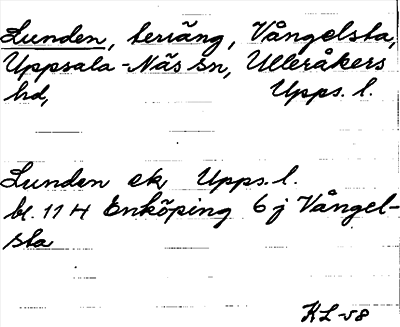 Lunden, teräng, Vångelsta,
Uppsala-Näs sn, Ulleråkers
hd, Upps. l.
Lunden ek Upps. l.
bl. 114 Enköping 6 j Vångel-
sta
KL-58